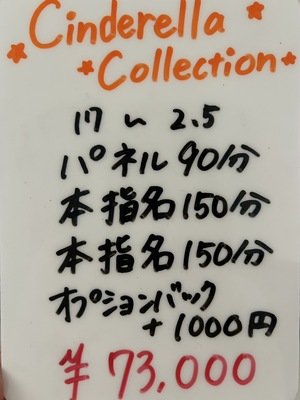 Cinderella
Collection
17 〜 2.5
パネル 90分
本指名 150分
本指名 150分
オプションバック
+ 1000円
¥ 73,000